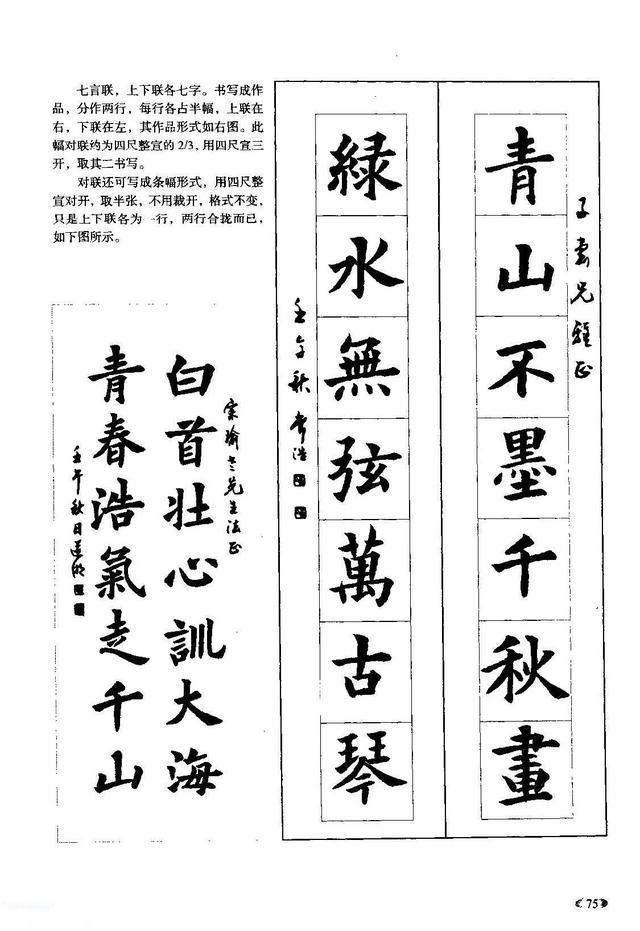 七言联，上下联各七字。书写成作
品，分作两行，每行各占半幅，上联在
右，下联在左，其作品形式如右图。此
幅对联约为四尺整宣的 2/3，用四尺宣三
开，取其二书写。
对联还可写成条幅形式，用四尺整
宣对开，取半张，不用裁开，格式不变，
只是上下联各为一行，两行合拢而已，
如下图所示。
子云兄雅正
青山不墨千秋畫
緑水無弦萬古琴
壬午秋
白首壯心訓大海
青春浩氣走千山
壬午秋日
75